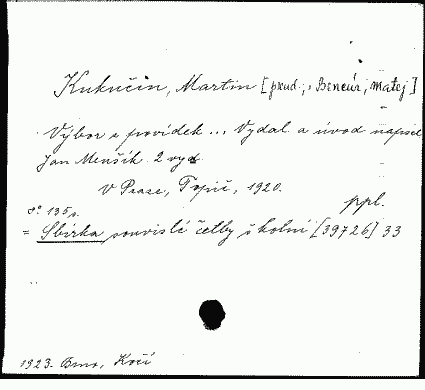 Kukučín, Martin [pseud.; Bencúr, Matej]
Výbor z povídek ... Vydal a úvod napsal
Jan Menšík. 2 vyd.
V Praze, Topič, 1920.
ppl.
8°. 135 s.
= Sbírka souvislé četby školní [39726] 33
1923. Brno, Kočí